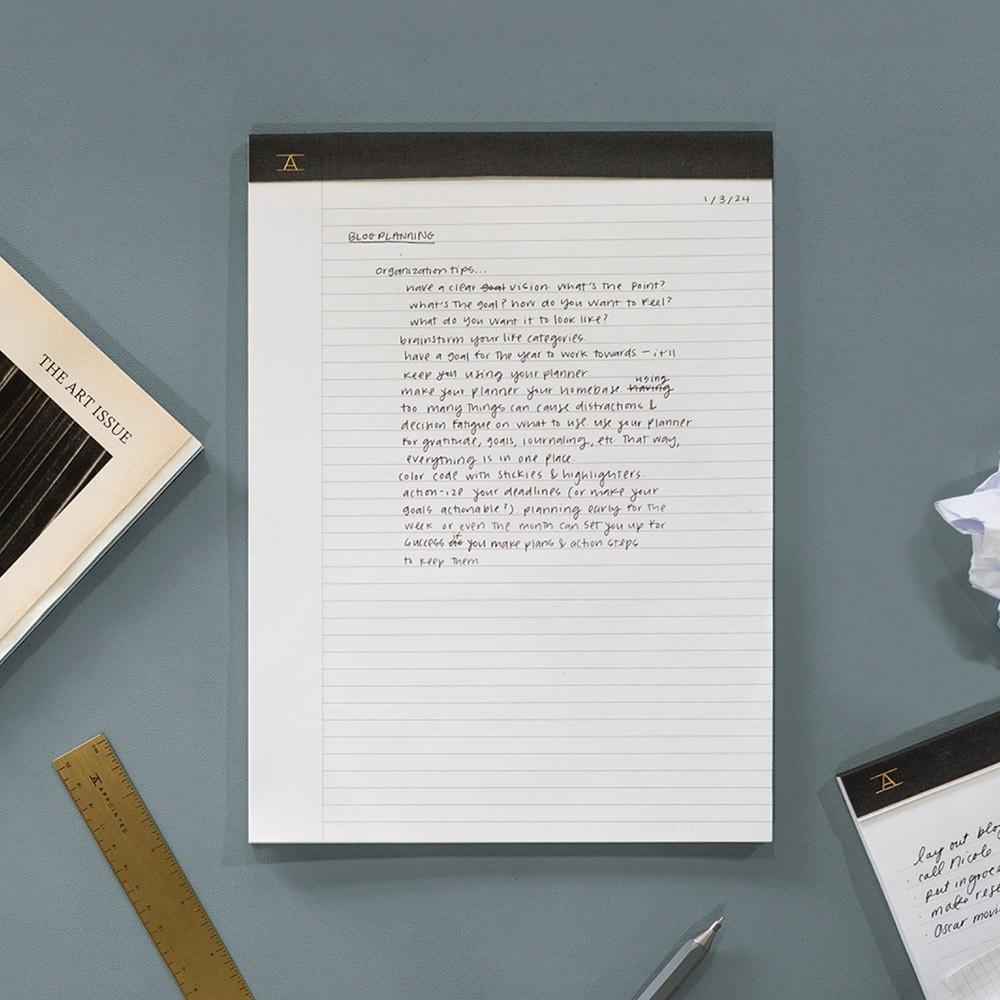 1/3/24
BLOG PLANNING
organization tips...
· have a clear goal vision. what's the point?
what's the goal? how do you want to feel?
what do you want it to look like?
· brainstorm your life categories.
· have a goal for the year to work towards – it'll
keep you using your planner.
· make your planner your homebase. having using
too many things can cause distractions &
decision fatigue on what to use. use your planner
for gratitude, goals, journaling, etc. that way,
everything is in one place.
· color code with stickies & highlighters.
· action-ize your deadlines (or make your
goals actionable?) planning early for the
week or even the month can set you up for
success if you make plans & action steps
to keep them
THE ART ISSUE
A APPOINTED
A
A
lay out blog
· call Nicole
· put in groc
· make rese
· Oscar movi